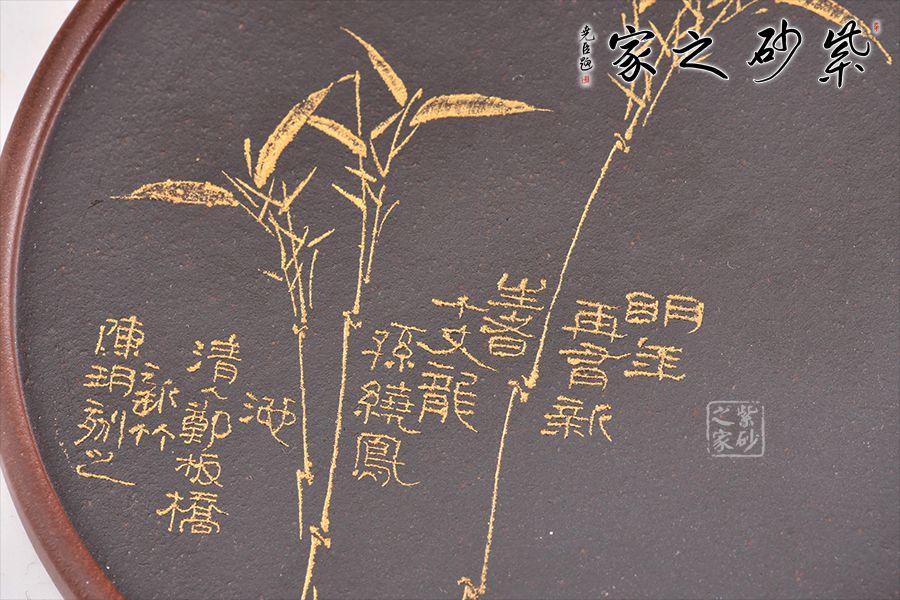 紫砂之家
尧臣題
明年
再有新
生者
十丈龍
孫繞鳳
池
清人鄭板橋
新竹
陳玥刻之
紫砂之家